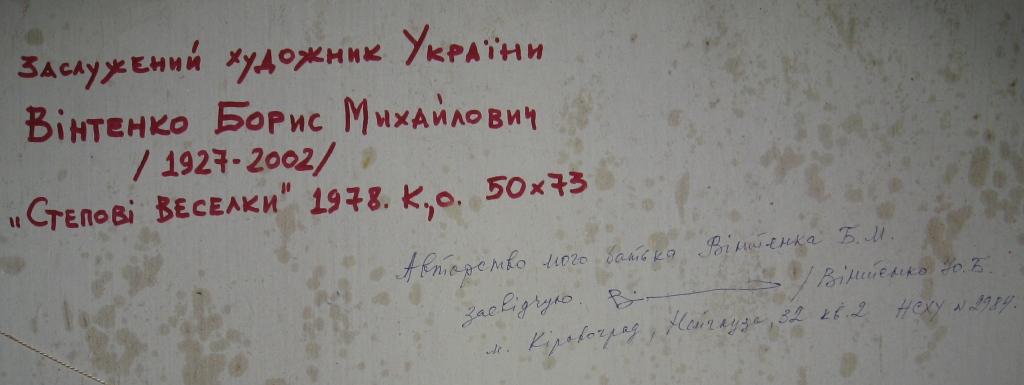 Заслужений художник України
Вінтенко Борис Михайлович
/1927-2002/
„Степові веселки" 1978. К.,о. 50х73
Авторство мого батька Вінтенка Б.М.
засвідчую. /Вінтенко Ю.Б.
м. Кіровоград, 32 кв.2 НСХУ №2984.